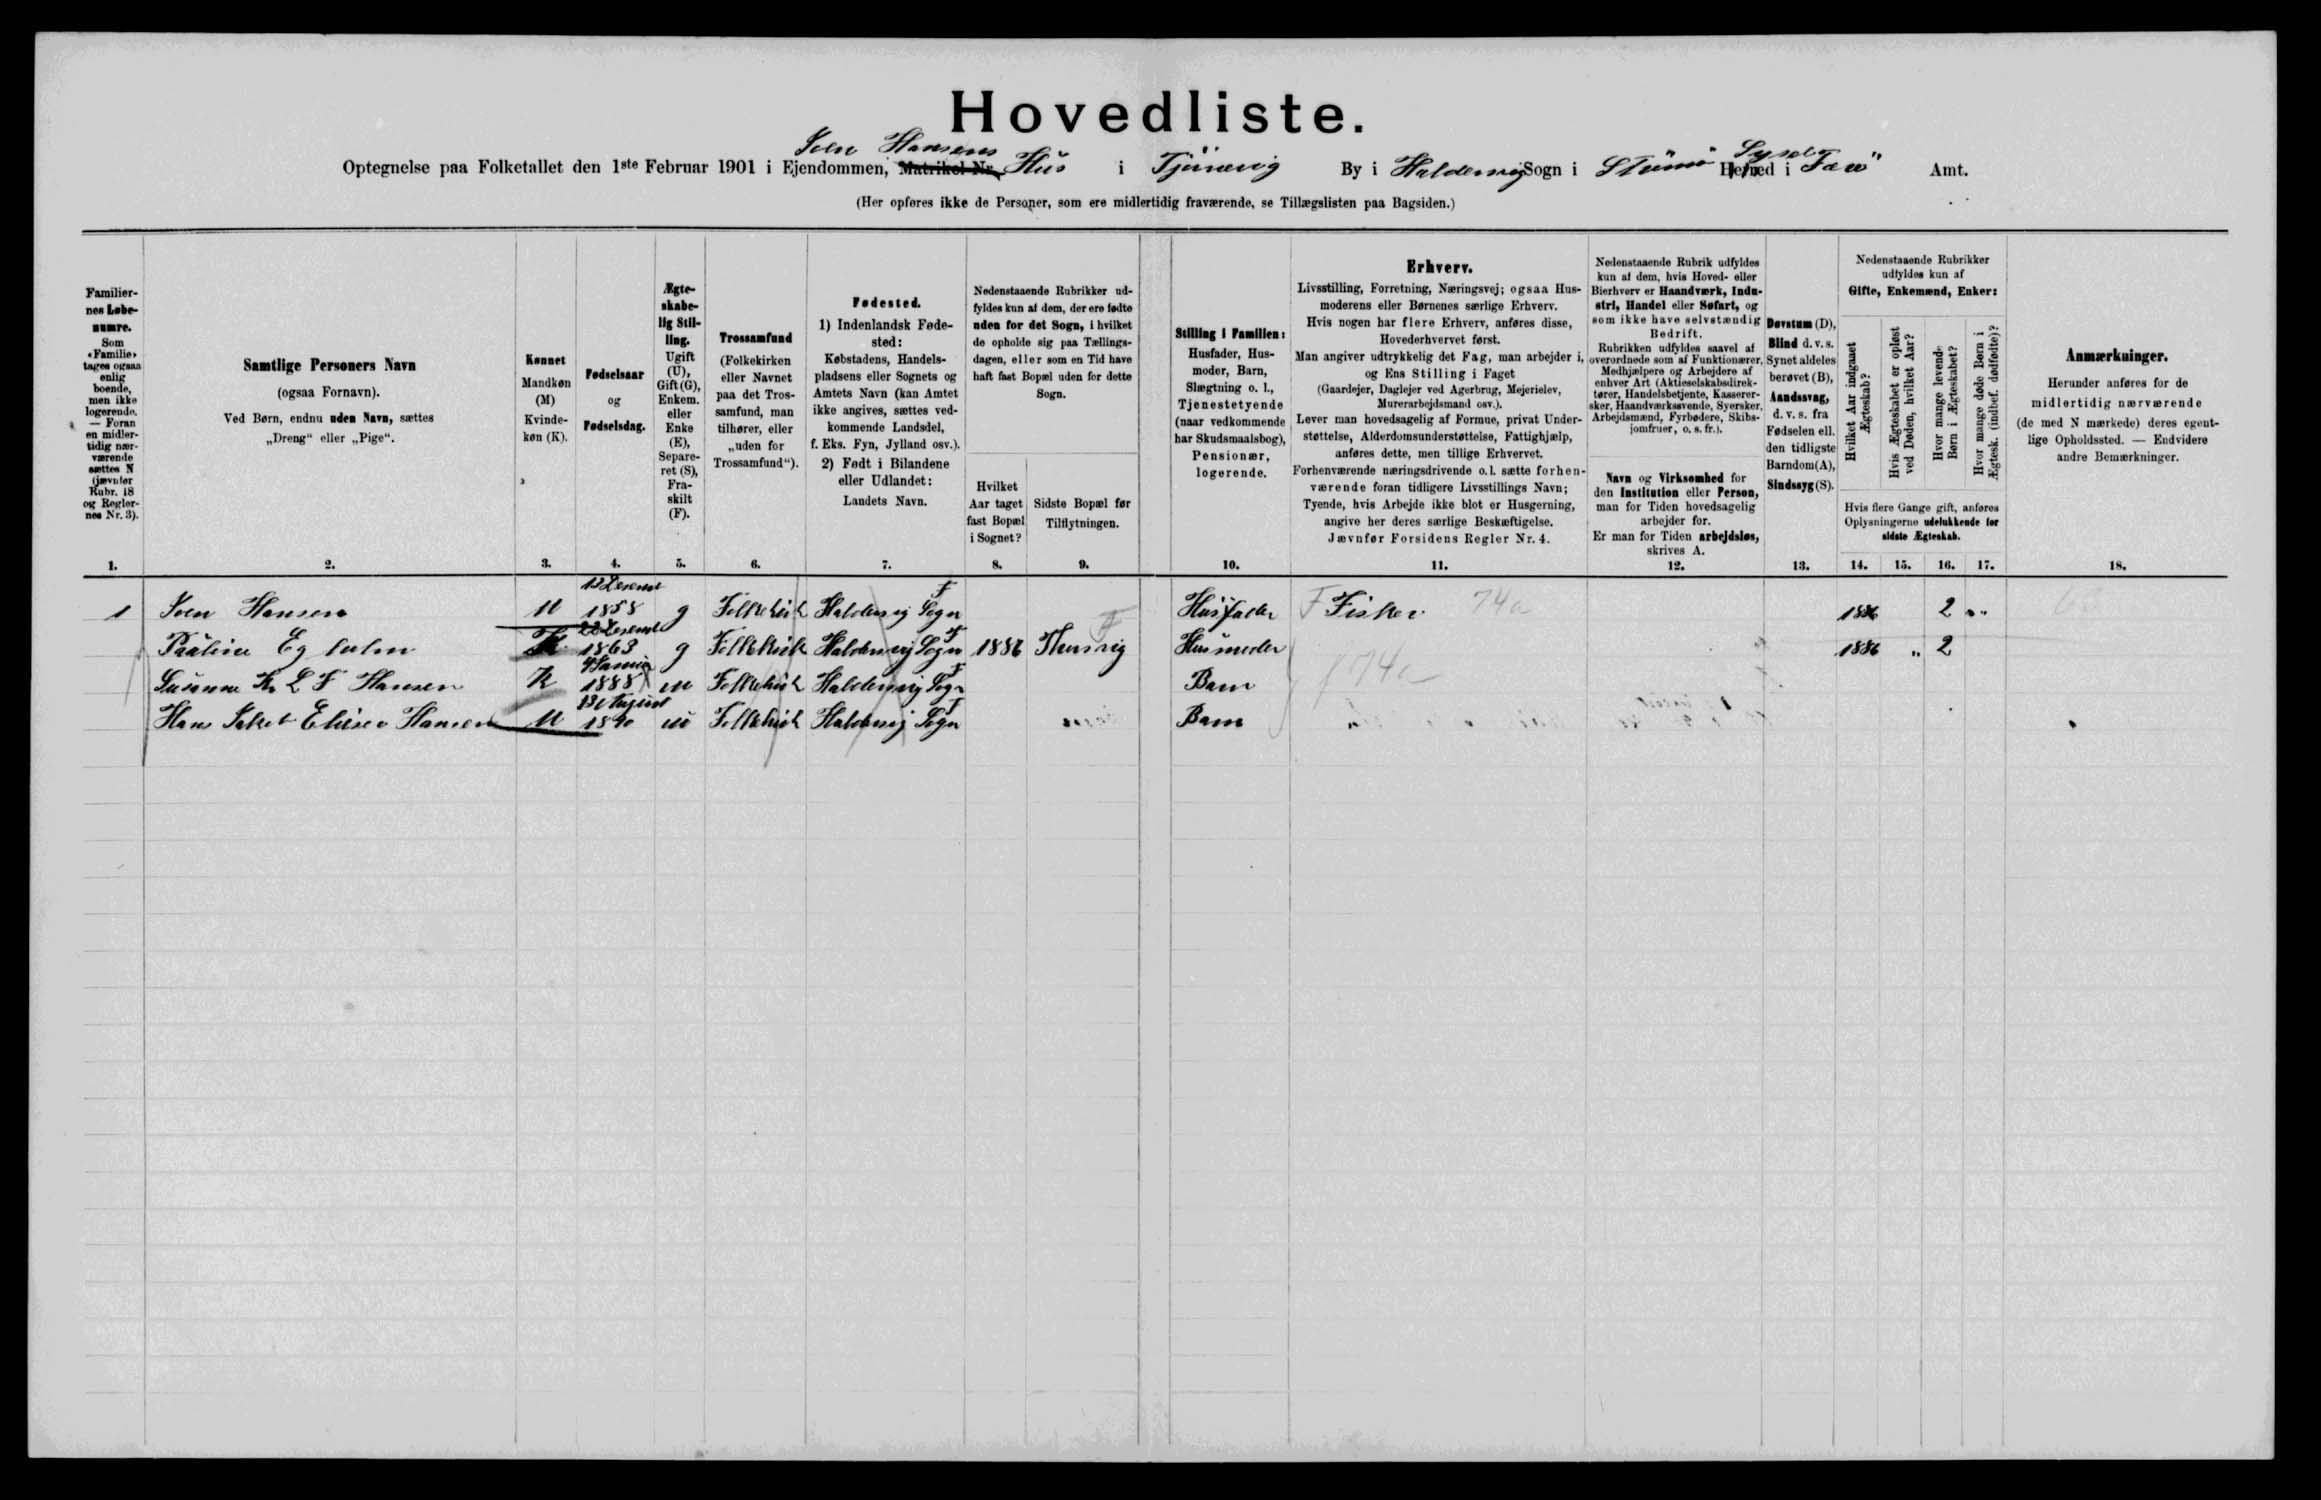 Hovedliste.
Iven Hansens
Optegnelse paa Folketallet den 1ste Februar 1901 i Ejendommen, Matrikel Nr. Hüs i Tjürnvig By i Haldersvig Sogn i Strümö Herred i Syssel Færö Amt.
(Her opføres ikke de Personer, som ere midlertidig fraværende, se Tillægslisten paa Bagsiden.)
Familiernes Løbenumre.
Som «Familie» tages ogsaa enlig boende, men ikke logerende. — Foran en midlertidig nærværende sættes N (jævnfør Rubr. 18 og Reglernes Nr. 3).
1.
Samtlige Personers Navn
(ogsaa Fornavn).
Ved Børn, endnu uden Navn, sættes
„Dreng“ eller „Pige“.
2.
Kønnet
Mandkøn (M)
Kvindekøn (K).
3.
Fødselsaar
og
Fødselsdag.
4.
Ægteskabelig Stilling.
Ugift (U), Gift (G), Enkem. eller Enke (E), Separeret (S), Fraskilt (F).
5.
Trossamfund
(Folkekirken eller Navnet paa det Trossamfund, man tilhører, eller „uden for Trossamfund“).
6.
Fødested.
1) Indenlandsk Fødested:
Købstadens, Handelspladsens eller Sognets og Amtets Navn (kan Amtet ikke angives, sættes vedkommende Landsdel, f. Eks. Fyn, Jylland osv.).
2) Født i Bilandene eller Udlandet:
Landets Navn.
7.
Nedenstaaende Rubrikker udfyldes kun af dem, der ere fødte uden for det Sogn, i hvilket de opholde sig paa Tællingsdagen, eller som en Tid have haft fast Bopæl uden for dette Sogn.
Hvilket Aar taget fast Bopæl i Sognet?
8.
Sidste Bopæl før Tilflytningen.
9.
Stilling i Familien:
Husfader, Husmoder, Barn, Slægtning o. l., Tjenestetyende (naar vedkommende har Skudsmaalsbog), Pensionær, logerende.
10.
Erhverv.
Livsstilling, Forretning, Næringsvej; ogsaa Husmoderens eller Børnenes særlige Erhverv.
Hvis nogen har flere Erhverv, anføres disse, Hovederhvervet først.
Man angiver udtrykkelig det Fag, man arbejder i, og Ens Stilling i Faget
(Gaardejer, Daglejer ved Agerbrug, Mejerielev, Murerarbejdsmand osv.).
Lever man hovedsagelig af Formue, privat Understøttelse, Alderdomsunderstøttelse, Fattighjælp, anføres dette, men tillige Erhvervet.
Forhenværende næringsdrivende o. l. sætte forhenværende foran tidligere Livsstillings Navn;
Tyende, hvis Arbejde ikke blot er Husgerning, angive her deres særlige Beskæftigelse.
Jævnfør Forsidens Regler Nr. 4.
11.
Nedenstaaende Rubrik udfyldes kun af dem, hvis Hoved- eller Bierhverv er Haandværk, Industri, Handel eller Søfart, og som ikke have selvstændig Bedrift.
Rubrikken udfyldes saavel af overordnede som af Funktionærer, Medhjælpere og Arbejdere af enhver Art (Aktieselskabsdirektører, Handelsbetjente, Kasserersker, Haandværkssvende, Syersker, Arbejdsmænd, Fyrbødere, Skibsjomfruer, o. s. fr.).
Navn og Virksomhed for den Institution eller Person, man for Tiden hovedsagelig arbejder for.
Er man for Tiden arbejdsløs, skrives A.
12.
Døvstum (D), Blind d. v. s. Synet aldeles berøvet (B), Aandssvag, d. v. s. fra Fødselen ell. den tidligste Barndom (A), Sindssyg (S).
13.
Nedenstaaende Rubrikker udfyldes kun af
Gifte, Enkemænd, Enker:
Hvilket Aar indgaaet Ægteskab?
Hvis Ægteskabet er opløst ved Døden, hvilket Aar?
Hvor mange levende Børn i Ægteskabet?
Hvor mange døde Børn i Ægtesk. (indbef. dødfødte)?
Hvis flere Gange gift, anføres Oplysningerne udelukkende for sidste Ægteskab.
14. 15. 16. 17.
Anmærkninger.
Herunder anføres for de midlertidig nærværende (de med N mærkede) deres egentlige Opholdssted. — Endvidere andre Bemærkninger.
18.
1 Iven Hansen M 1858 g Folkekirk Haldersvig Sogn Hüsfader F Fisker 74a 1886 2 „
1863 g Folkekirk Haldersvig Sogn 1886 Hüsmoder 74a 1886 „ 2
Süsanne K L F Hansen K 1888 ü Folkekirk Haldersvig Sogn Barn
Hans Jakob Elieser Hansen M 13 August 1890 ü Folkekirk Haldersvig Sogn Barn